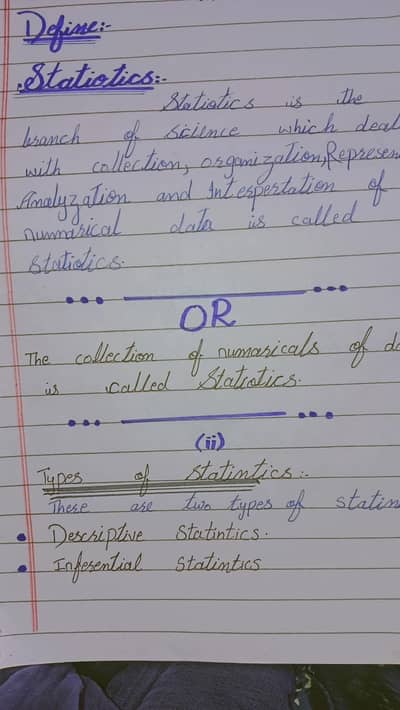 Define:-
Statistics:-
Statistics is the
branch of science which deal
with collection, organization, Represen
Analyzation and Interpertation of
nummarical data is called
Statistics.
OR
The collection of numaricals of da
is called Statistics.
(ii)
Types of Statintics:-
These are two types of statin
• Descriptive Statintics.
• Inferential Statintics